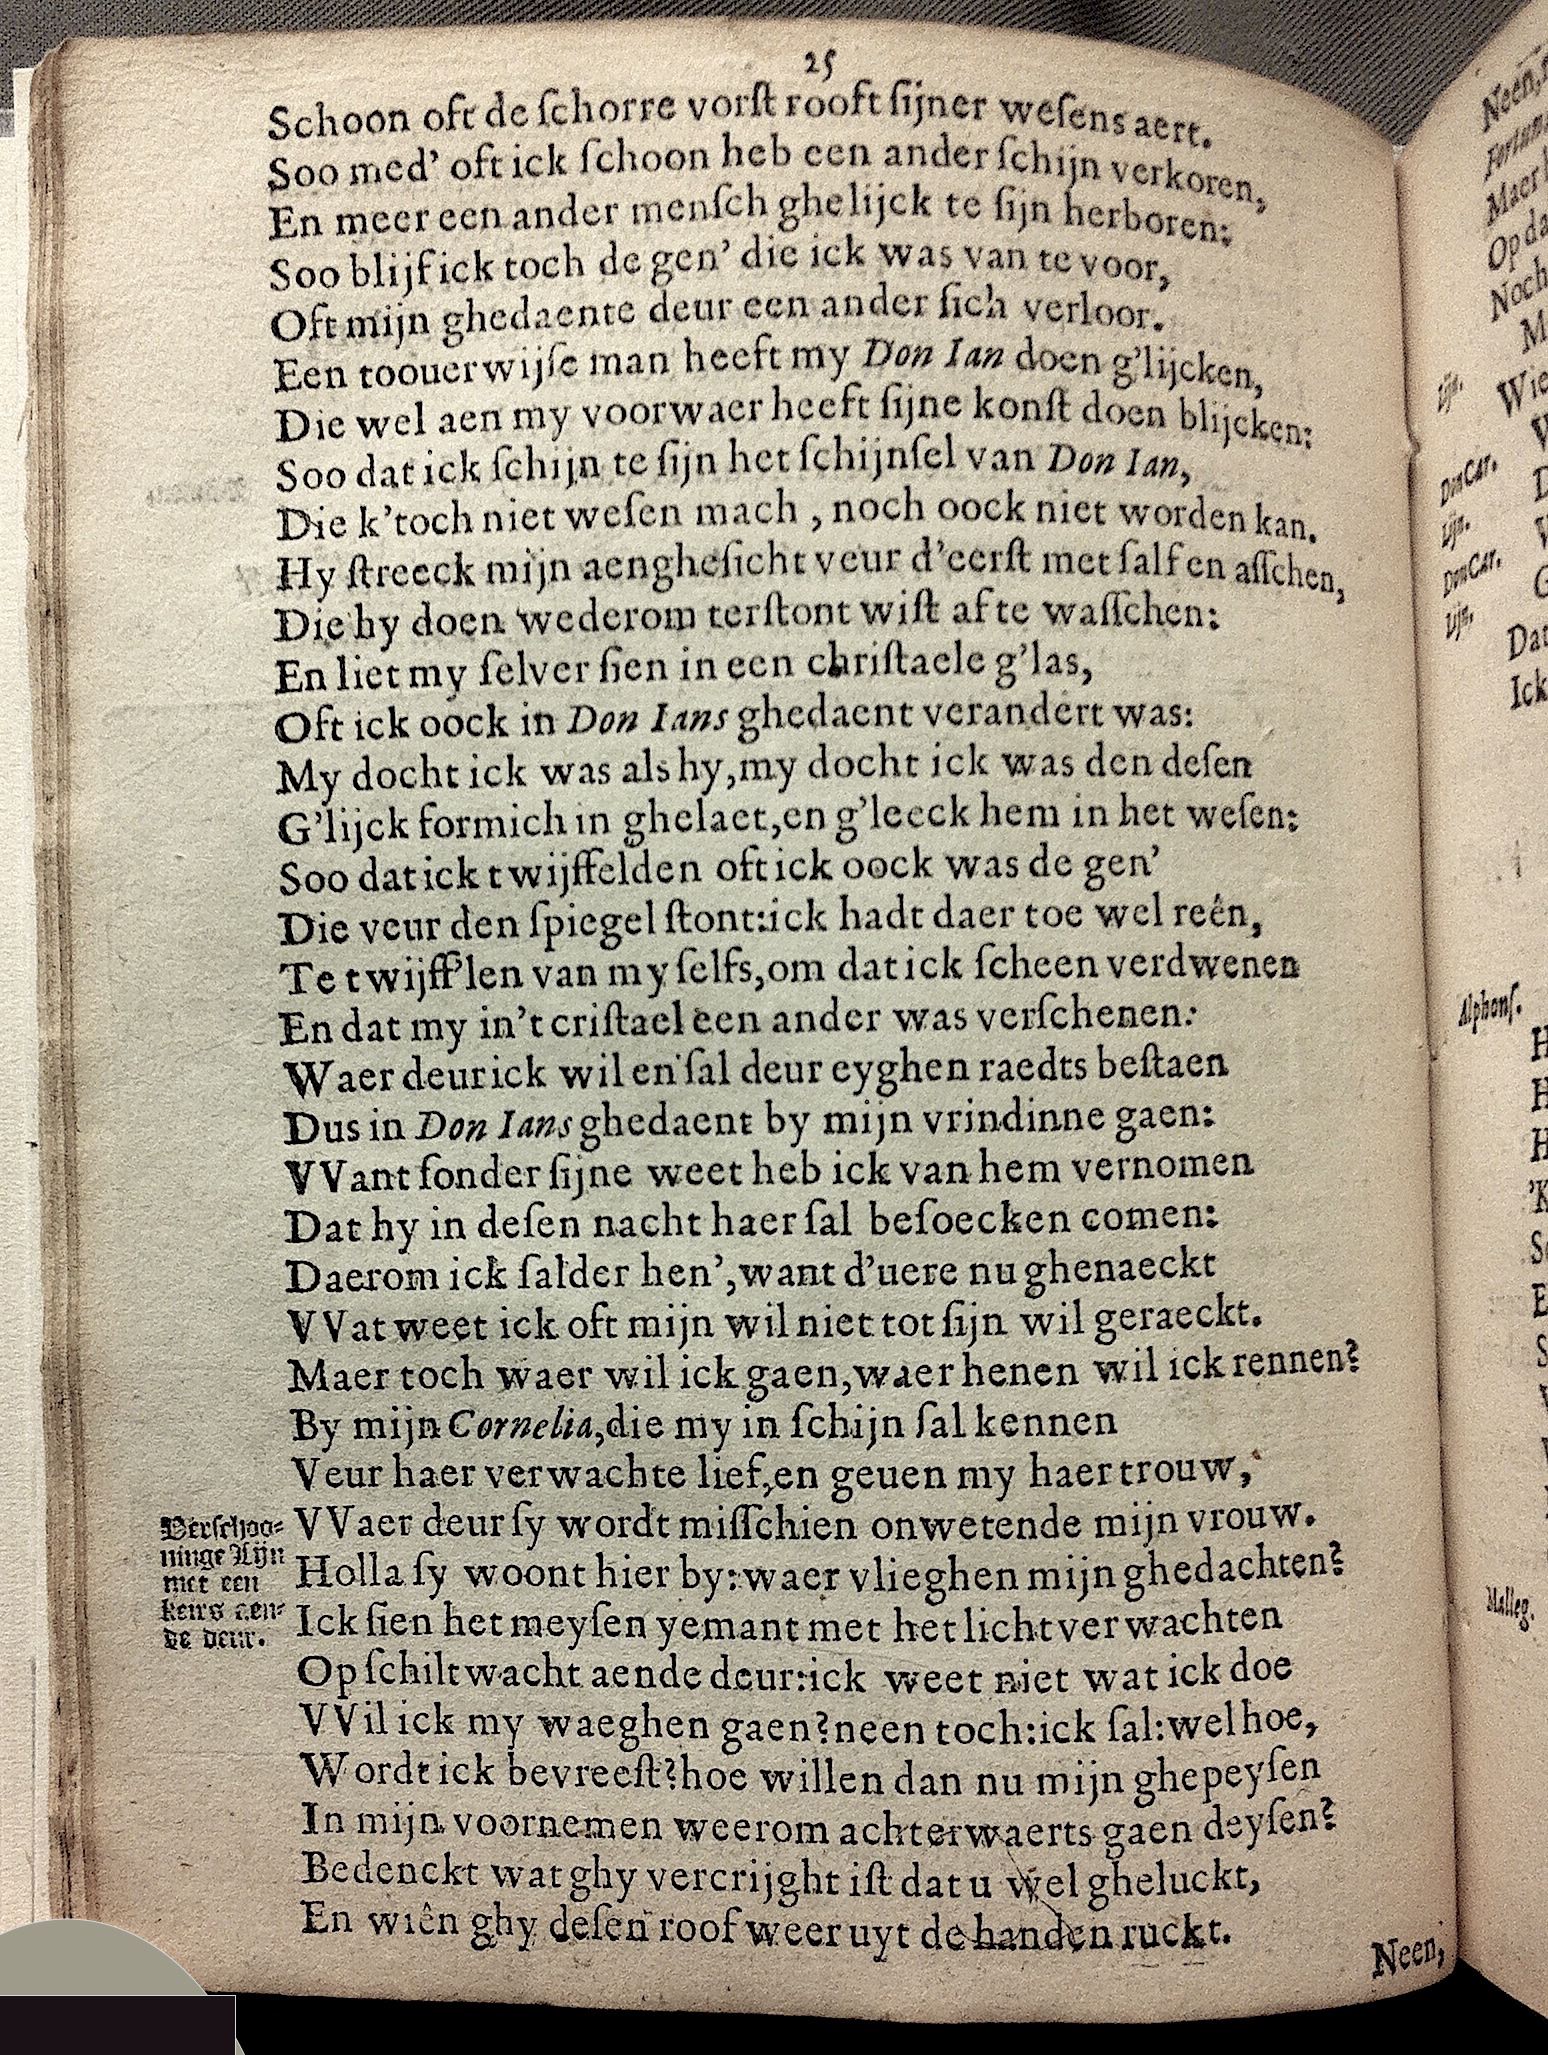 25
Schoon oft de ſchorre vorſt rooft ſijner weſens aert.
Soo med' oft ick ſchoon heb een ander ſchijn verkoren,
En meer een ander menſch ghelijck te ſijn herboren:
Soo blijf ick toch de gen' die ick was van te voor,
Oft mijn ghedaente deur een ander ſich verloor.
Een toouerwijſe man heeft my Don Ian doen g'lijcken,
Die wel aen my voorwaer heeft ſijne konſt doen blijcken:
Soo dat ick ſchijn te ſijn het ſchijnſel van Don Ian,
Die k'toch niet weſen mach , noch oock niet worden kan.
Hy ſtreeck mijn aengheſicht veur d'eerſt met ſalf en aſſchen,
Die hy doen wederom terſtont wiſt af te waſſchen:
En liet my ſelver ſien in een chriſtaele g'las,
Oft ick oock in Don Ians ghedaent verandert was:
My docht ick was als hy,my docht ick was den deſen
G'lijck formich in ghelaet,en g'leeck hem in het weſen:
Soo dat ick twijffelden oft ick oock was de gen'
Die veur den ſpiegel ſtont:ick hadt daer toe wel reên,
Te twijff'len van my ſelfs,om dat ick ſcheen verdwenen
En dat my in't criſtael een ander was verſchenen:
Waer deur ick wil en ſal deur eyghen raedts beſtaen
Dus in Don Ians ghedaent by mijn vrindinne gaen:
VVant ſonder ſijne weet heb ick van hem vernomen
Dat hy in deſen nacht haer ſal beſoecken comen:
Daerom ick ſalder hen',want d'uere nu ghenaeckt
VVat weet ick oft mijn wil niet tot ſijn wil geraeckt.
Maer toch waer wil ick gaen,waer henen wil ick rennen?
By mijn Cornelia,die my in ſchijn ſal kennen
Veur haer verwachte lief,en geuen my haer trouw,
VVaer deur ſy wordt miſſchien onwetende mijn vrouw.
Holla ſy woont hier by:waer vlieghen mijn ghedachten?
Ick ſien het meyſen yemant met het licht verwachten
Op ſchiltwacht aende deur:ick weet niet wat ick doe
VVil ick my waeghen gaen?neen toch:ick ſal:wel hoe,
Wordt ick bevreeſt?hoe willen dan nu mijn ghepeyſen
In mijn voornemen weerom achterwaerts gaen deyſen?
Bedenckt wat ghy vercrijght iſt dat u wel gheluckt,
En wiên ghy deſen roof weer uyt de handen ruckt.
Neen,
Verſchoo-
ninge Lijn
met een
keirs aen-
de deur.
Neen,
Maer
Op da
Noch
M
Lijn. Wie
Don Car.
Lijn.
Don Car.
Lijn.
Dat
Ick
Alphonſ.
Malleg.